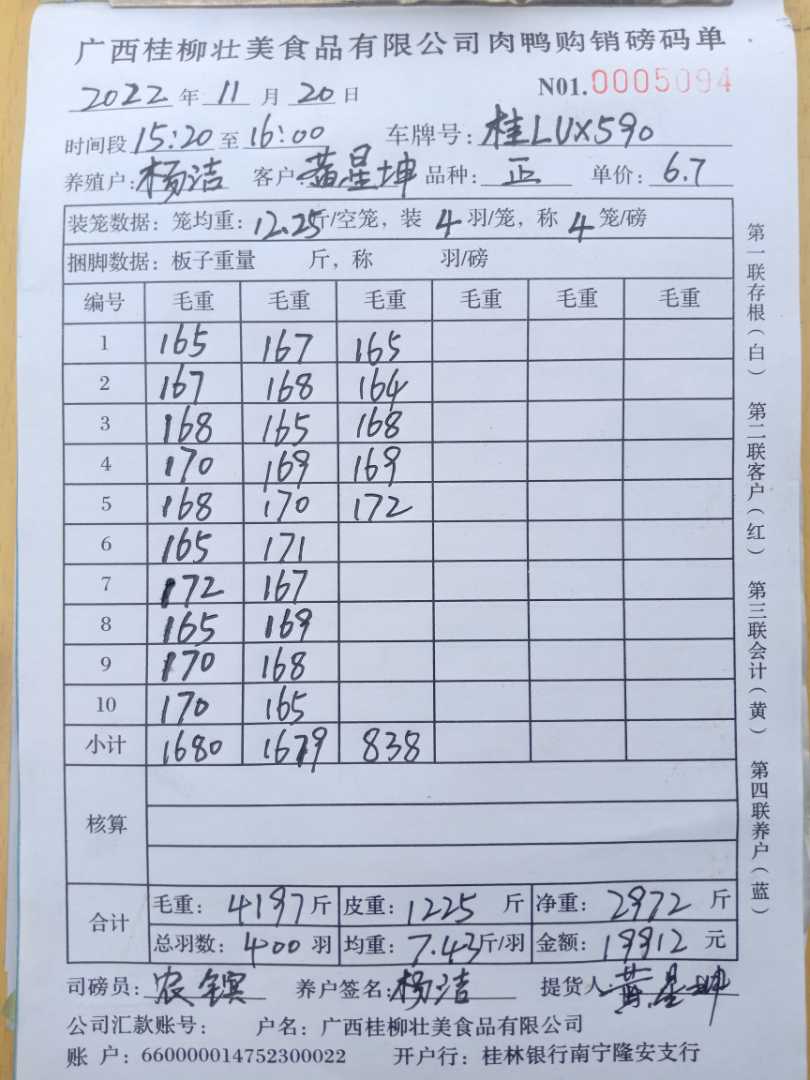 广西桂柳壮美食品有限公司肉鸭购销磅码单
2022 年 11 月 20 日 N01.0005094
时间段 15:20 至 16:00 车牌号: 桂LUX590
养殖户: 杨洁 客户: 黄星坤 品种: 正 单价: 6.7
装笼数据: 笼均重: 12.25 斤/空笼, 装 4 羽/笼, 称 4 笼/磅
捆脚数据: 板子重量 斤, 称 羽/磅
编号 毛重 毛重 毛重 毛重 毛重 毛重
1 165 167 165
2 167 168 164
3 168 165 168
4 170 169 169
5 168 170 172
6 165 171
7 172 167
8 165 169
9 170 168
10 170 165
小计 1680 1679 838
核算
合计
毛重: 4197 斤 皮重: 1225 斤 净重: 2972 斤
总羽数: 400 羽 均重: 7.43 斤/羽 金额: 19912 元
司磅员: 农 养户签名: 杨洁 提货人: 黄星坤
公司汇款账号: 户名: 广西桂柳壮美食品有限公司
账 户: 660000014752300022 开户行: 桂林银行南宁隆安支行
第一联存根(白) 第二联客户(红) 第三联会计(黄) 第四联养户(蓝)